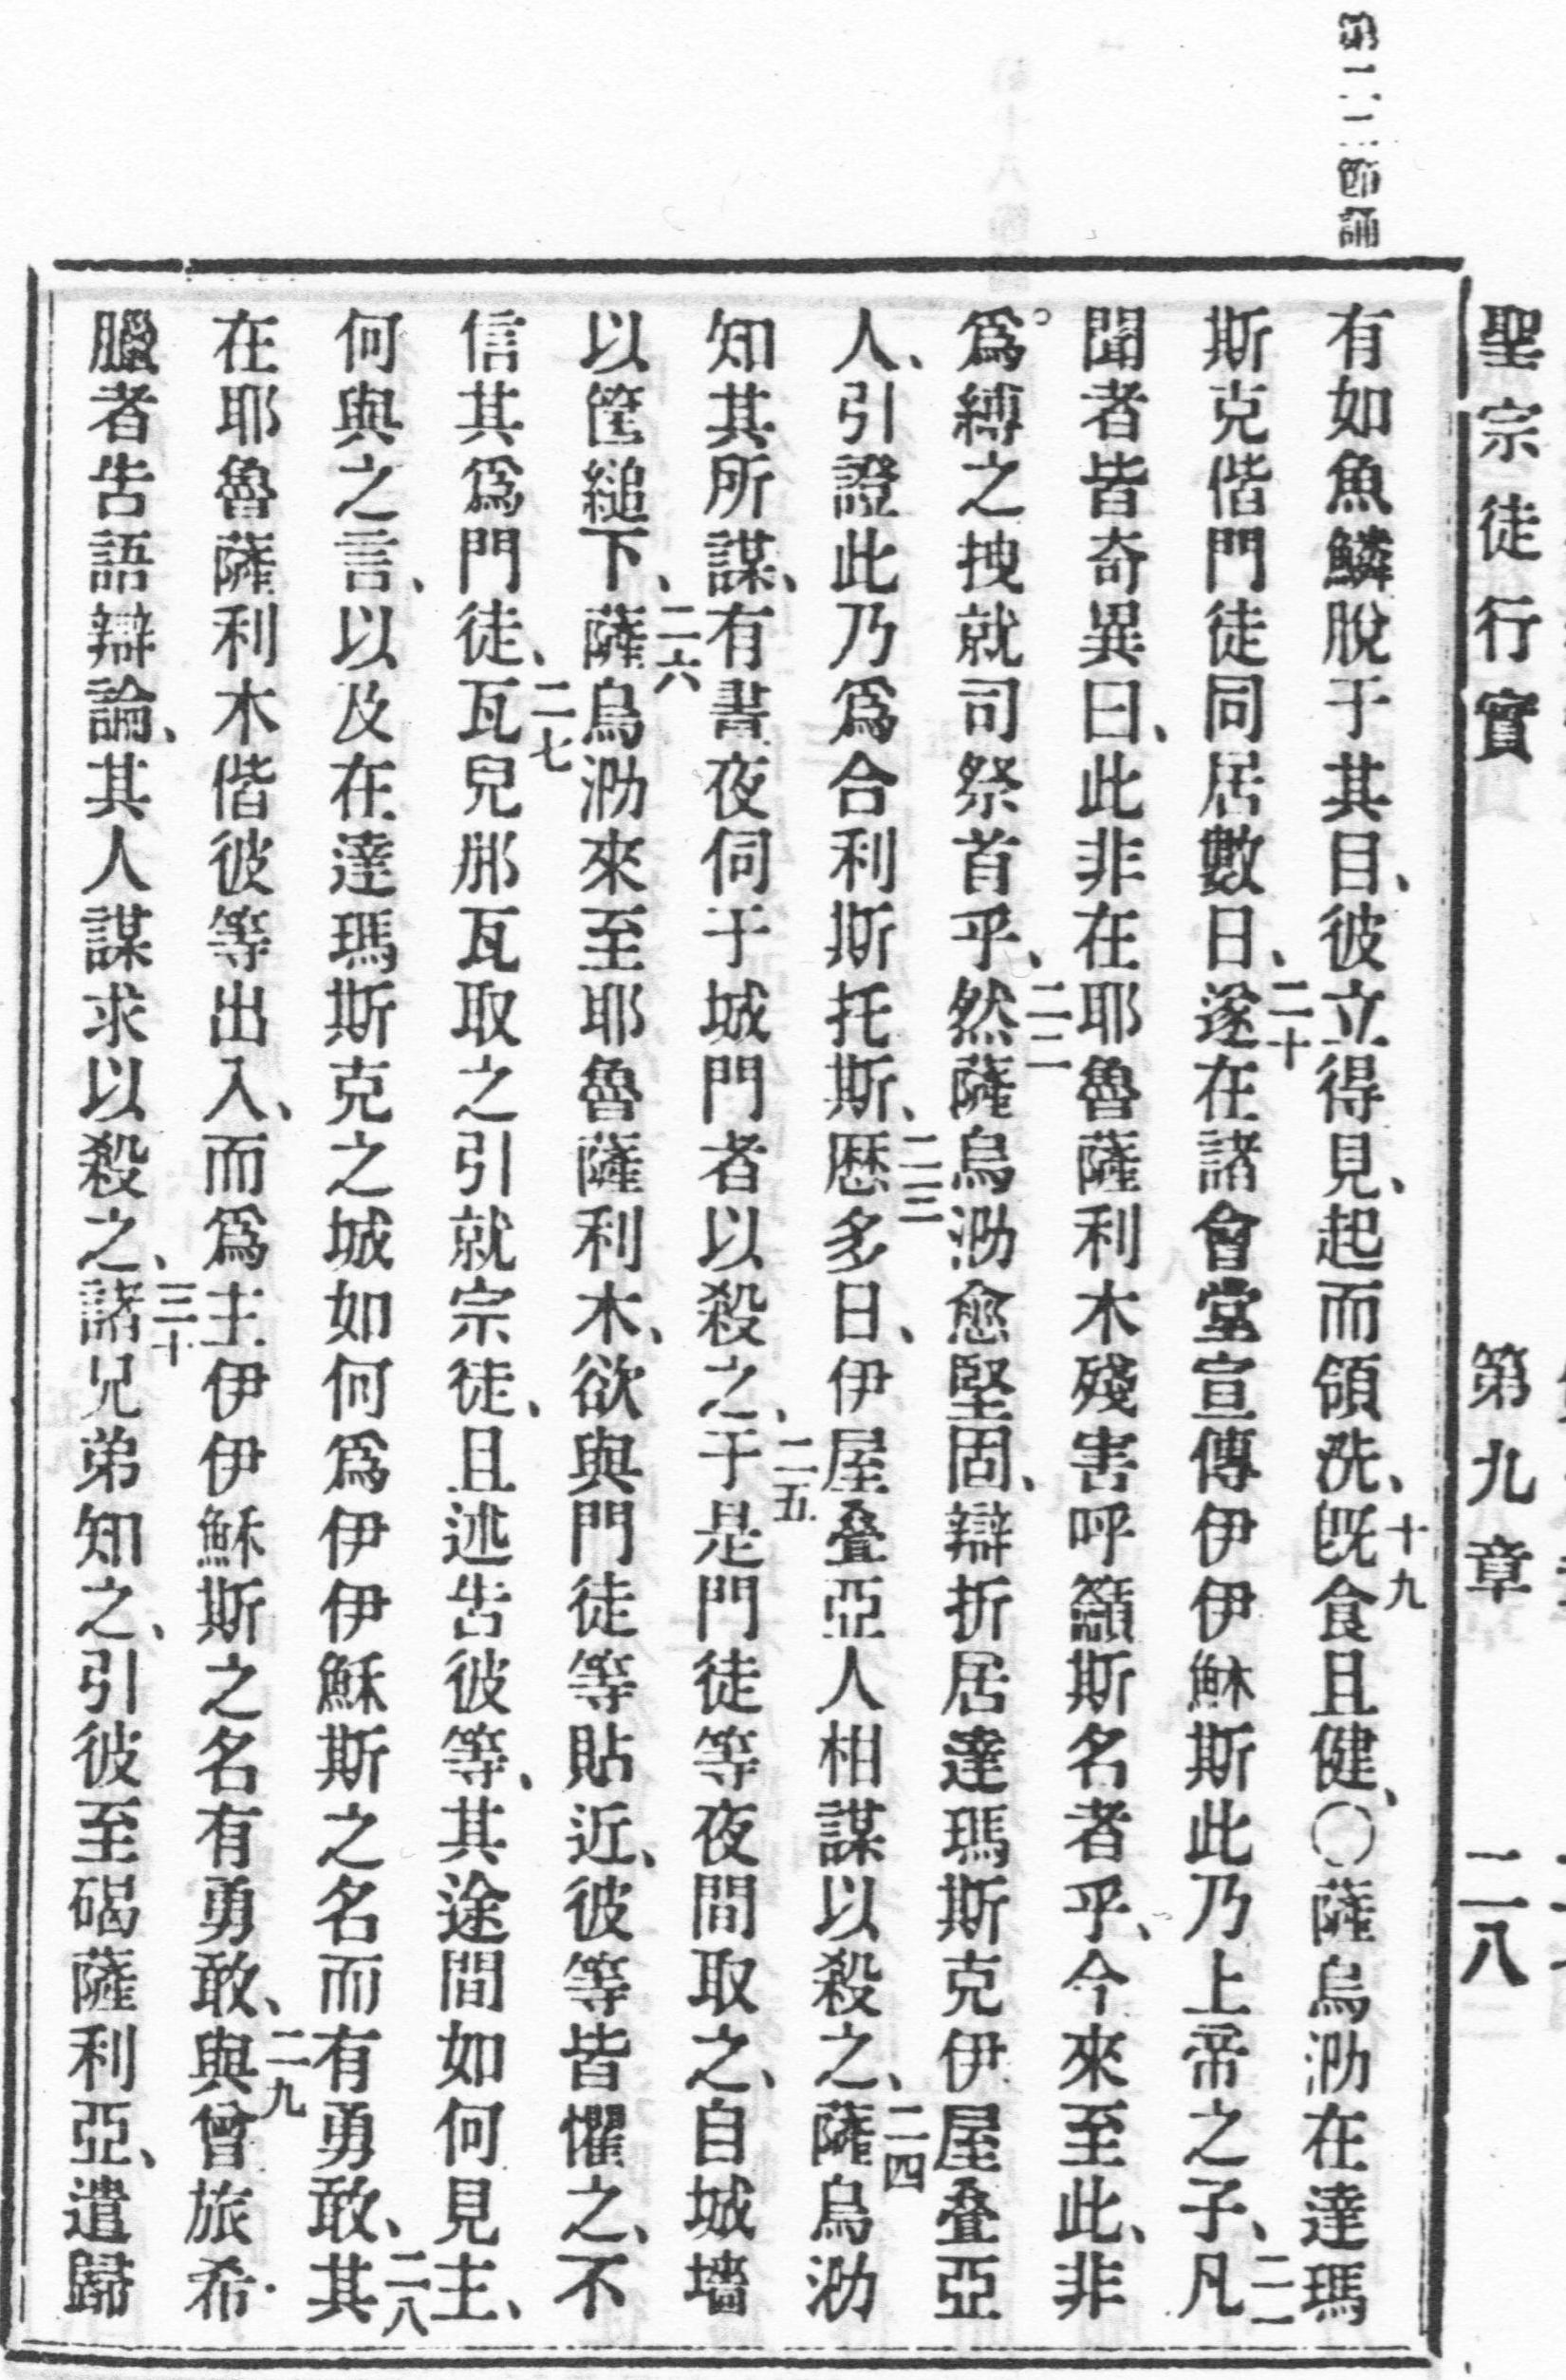 第二二節誦
聖宗徒行實　第九章　二八
有如魚鱗脫于其目、彼立得見、起而領洗、十九旣食且健、〇薩烏泐在達瑪
斯克偕門徒同居數日、二十遂在諸會堂宣傳伊伊穌斯此乃上帝之子、二一凡
聞者皆奇異曰、此非在耶魯薩利木殘害呼籲斯名者乎、今來至此、非
爲縛之拽就司祭首乎、二二然薩烏泐愈堅固、辯折居達瑪斯克伊屋叠亞
人、引證此乃爲合利斯托斯、二三歷多日、伊屋叠亞人相謀以殺之、二四薩烏泐
知其所謀、有晝夜伺于城門者以殺之、二五于是門徒等夜間取之、自城墻
以筐縋下、二六薩烏泐來至耶魯薩利木、欲與門徒等貼近、彼等皆懼之、不
信其爲門徒、二七瓦兒那瓦取之引就宗徒、且述告彼等、其途間如何見主、
何與之言、以及在達瑪斯克之城如何爲伊伊穌斯之名而有勇敢、二八其
在耶魯薩利木偕彼等出入、而爲主伊伊穌斯之名有勇敢、二九與曾旅希
臘者告語辯論、其人謀求以殺之、三十諸兄弟知之、引彼至碣薩利亞、遣歸